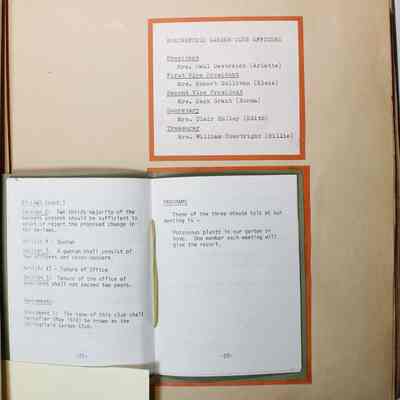 SPRINGFIELD GARDEN CLUB OFFICERS
President
Mrs. Paul (Arlette)
First Vice President
Mrs. Robert Sullivan
Second Vice President
Mrs. Zack Grant (Norma)
Secretary
Mrs. Clair Kelley (Edith)
Treasurer
Mrs. William Courtright (Billie)
By-Laws (cont.)
Two thirds majority of the
members present should be sufficient to
pass or reject the proposed change in
the by-laws.
Quorum
A quorum shall consist of
two officers and
Article XI - Tenure of Office
Tenure of the office of
shall not exceed two years.
Amendment 1: The name of this club shall
hereafter (May 1970) be known as the
Springfield Garden Club.
PROGRAMS
Theme of the three minute talk at our
meeting is -
Poisonous plants in our garden or
home. One member each meeting will
give the report.